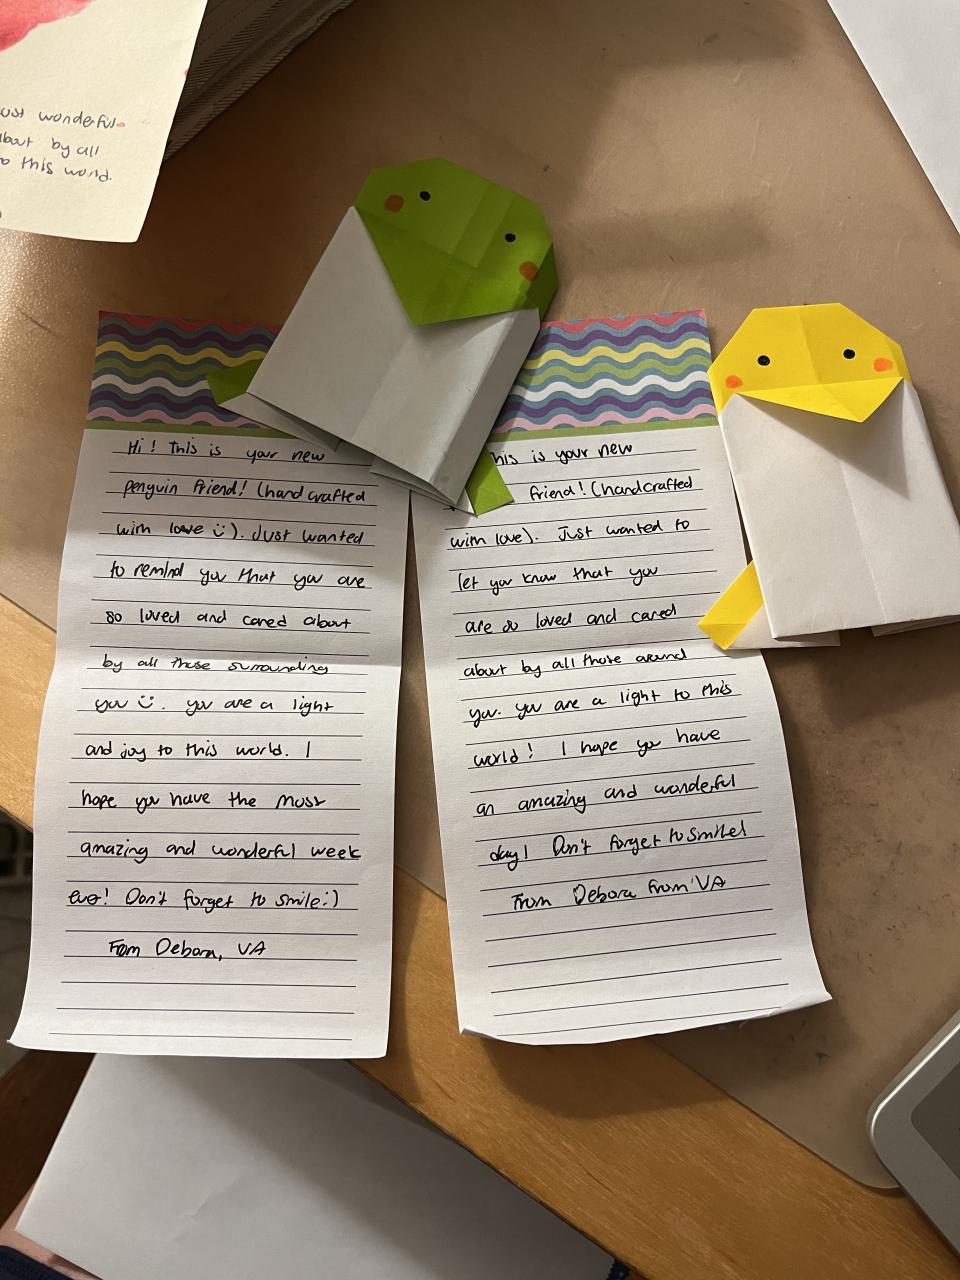 ust wonderful
about by all
to this world.
Hi! This is your new
penguin friend! (handcrafted
with love :)). Just wanted
to remind you that you are
so loved and cared about
by all those surrounding
you :). you are a light
and joy to this world. I
hope you have the most
amazing and wonderful week
ever! Don't forget to smile :)
From Debora, VA
his is your new
friend! (handcrafted
with love). Just wanted to
let you know that you
are so loved and cared
about by all those around
you. you are a light to this
world! I hope you have
an amazing and wonderful
day! Don't forget to smile!
From Debora from VA